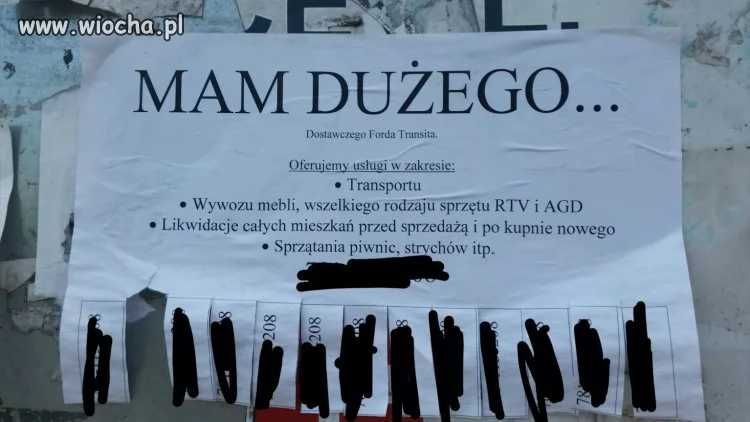 www.wiocha.pl
MAM DUŻEGO...
Dostawczego Forda Transita.
Oferujemy usługi w zakresie:
• Transportu
• Wywozu mebli, wszelkiego rodzaju sprzętu RTV i AGD
• Likwidacje całych mieszkań przed sprzedażą i po kupnie nowego
• Sprzątania piwnic, strychów itp.
208
208